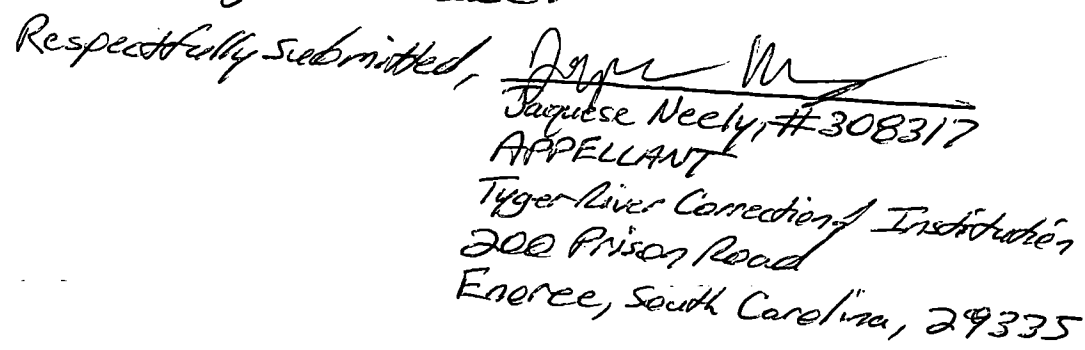 Respectfully submitted,
Jaquese Neely, #308317
APPELLANT
Tyger River Correctional Institution
200 Prison Road
Enoree, South Carolina, 29335